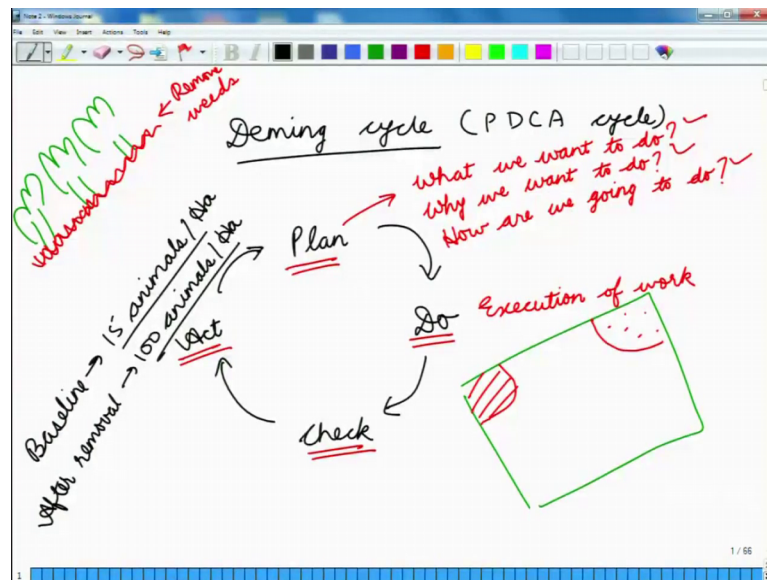 Note 2 - Windows Journal
File Edit View Insert Actions Tools Help
B I
Remove
weeds
Deming cycle (PDCA cycle)
What we want to do?
Why we want to do?
How are we going to do?
Plan
Do
Execution of work
Check
Act
Baseline → 15 animals / Ha
After removal → 100 animals / Ha
1 / 66
1